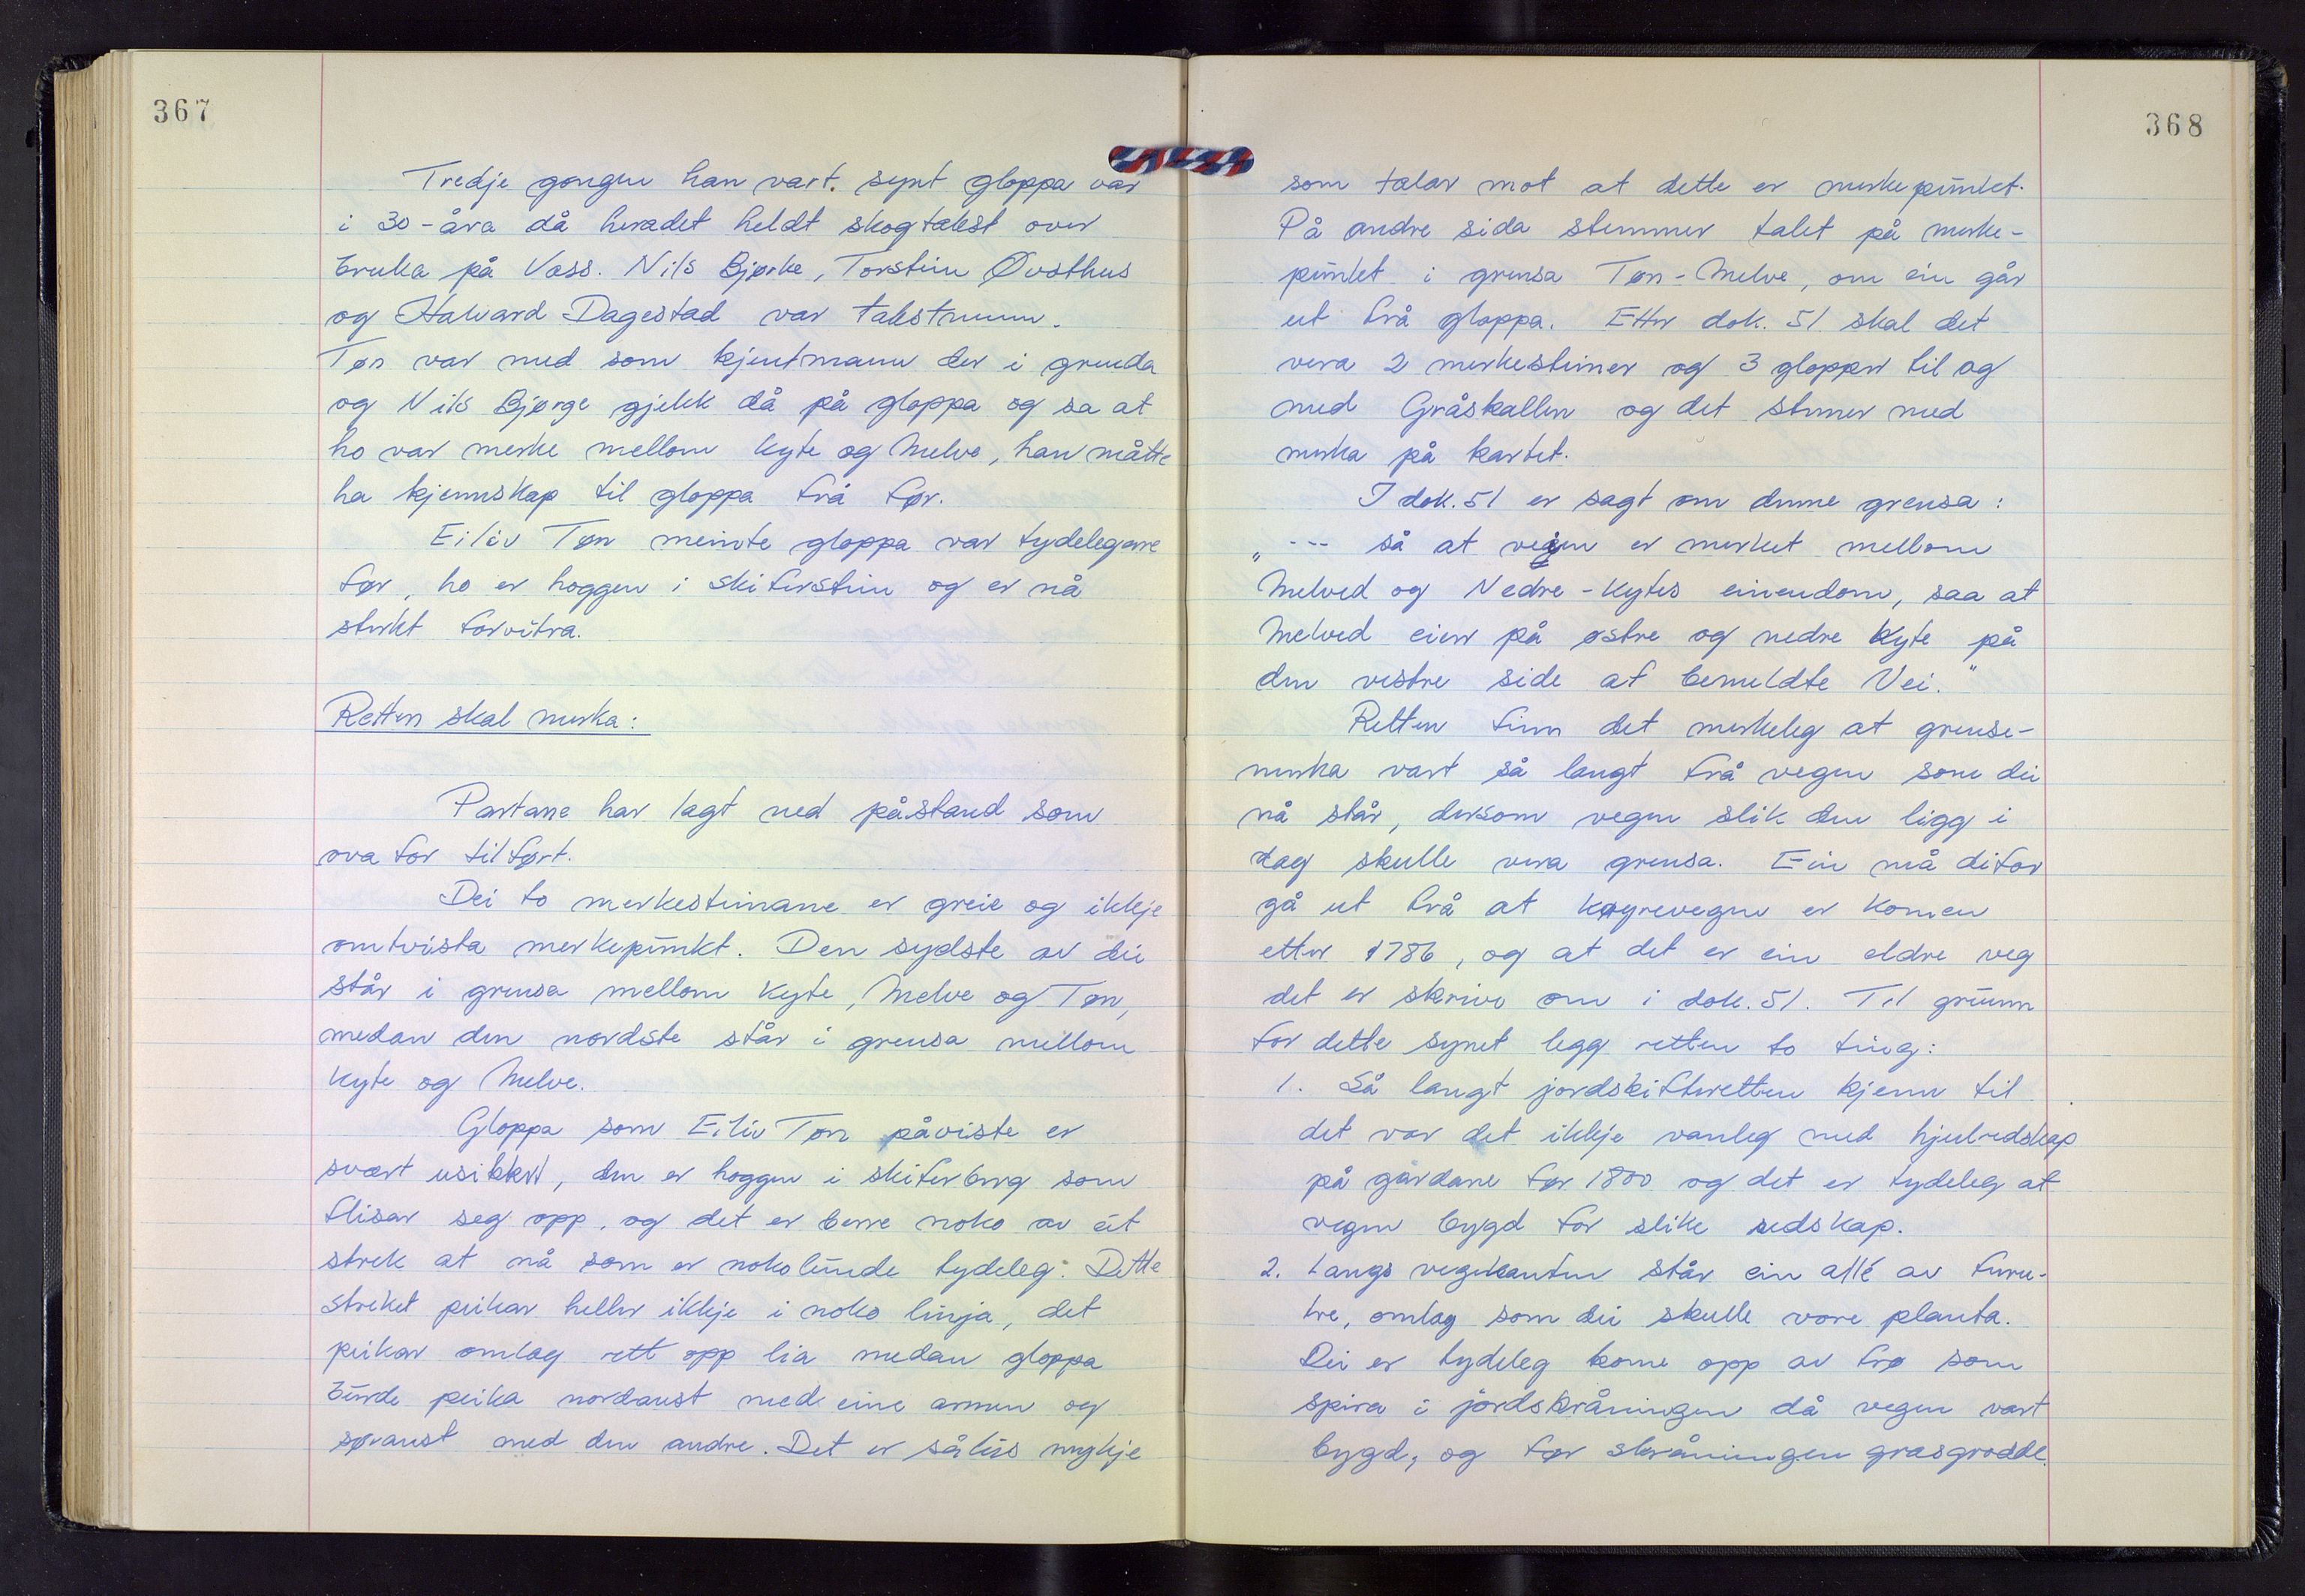 367
Tredje gongen han vart synt gloppa var
i 30-åra då heradet heldt skogtakst over
bruka på Voss. Nils Bjørke, Torstein Øvsthus
og Halvard Dagestad var takstmenn.
Tøn var med som kjentmann der i grenda
og Nils Bjørge gjekk då på gloppa og sa at
ho var merke mellom Kyte og Melve, han måtte
ha kjennskap til gloppa frå før.
Eiliv Tøn meinte gloppa var tydelegare
før, ho er hoggen i skiferstein og er nå
sterkt forvitra.
Retten skal merka:
Partane har lagt ned påstand som
ovafor tilført.
Dei to merkesteinane er greie og ikkje
omtvista merkepunkt. Den sydste av dei
står i grensa mellom Kyte, Melve og Tøn,
medan den nordste står i grensa mellom
Kyte og Melve.
Gloppa som Eiliv Tøn påviste er
svært usikker, den er hoggen i skiferberg som
flisar seg opp, og det er berre noko av eit
strek at nå som er nokolunde tydeleg. Dette
streket peikar heller ikkje i noko linja, det
peikar omlag rett opp lia medan gloppa
burde peika nordaust med eine armen og
søraust med den andre. Det er såleis mykje
368
som talar mot at dette er merkepunktet.
På andre sida stemmer talet på merke-
punktet i grensa Tøn-Melve, om ein går
ut frå gloppa. Etter dok. 51 skal det
vera 2 merkesteiner og 3 glopper til og
med Gråskallen og det stemer med
merka på kartet.
I dok. 51 er sagt om denne grensa:
„--- så at veien er merket mellom
Melved og Nedre-Kytes eiendom, saa at
Melved eier på østre og nedre Kyte på
den vestre side af bemeldte Vei."
Retten finn det merkeleg at grense-
merka vart så langt frå vegen som dei
nå står, dersom vegen slik den ligg i
dag skulle vera grensa. Ein må difor
gå ut frå at køyrevegen er komen
etter 1786, og at det er ein eldre veg
det er skrive om i dok. 51. Til grunn
for dette synet legg retten to ting:
1. Så langt jordskifteretten kjenn til
det var det ikkje vanleg med hjulredskap
på gardane før 1800 og det er tydeleg at
vegen bygd for slike redskap.
2. Langs vegkanten står ein allé av furu-
tre, omlag som dei skulle vore planta.
Dei er tydeleg kome opp av frø som
spira i jordskråningen då vegen vart
bygd, og før skråningen grasgrodde.